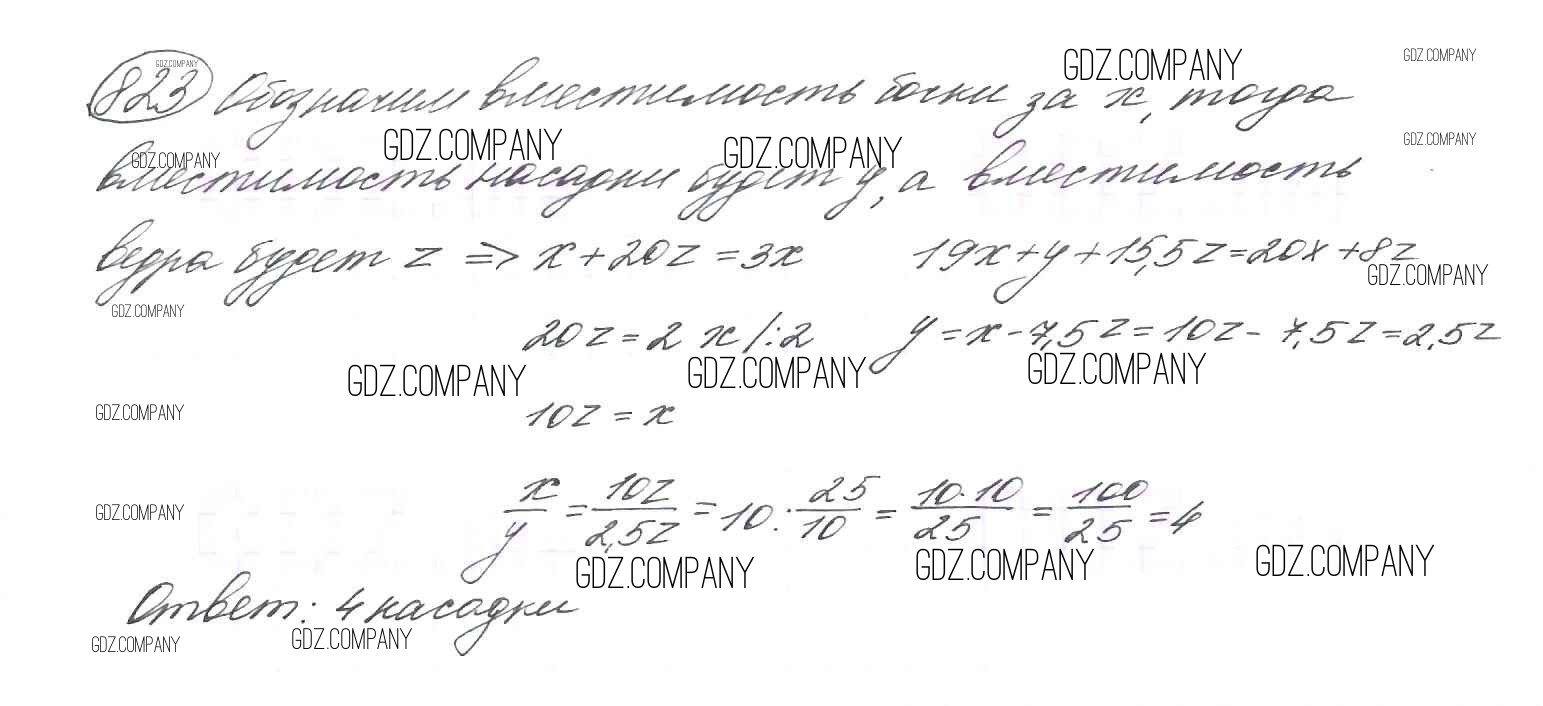 GDZ.COMPANY
823 Обозначим вместимость бочки за x, тогда
GDZ.COMPANY GDZ.COMPANY
GDZ.COMPANY GDZ.COMPANY GDZ.COMPANY GDZ.COMPANY
вместимость насадки будет y, а вместимость
ведра будет z => x + 20z = 3x 19x + y + 15,5z = 20x + 8z
GDZ.COMPANY
GDZ.COMPANY
20z = 2x /:2 y = x - 7,5z = 10z - 7,5z = 2,5z
GDZ.COMPANY GDZ.COMPANY GDZ.COMPANY
GDZ.COMPANY 10z = x
GDZ.COMPANY x/y = 10z/2,5z = 10 : 25/10 = 10·10/25 = 100/25 = 4
GDZ.COMPANY GDZ.COMPANY GDZ.COMPANY
Ответ: 4 насадки
GDZ.COMPANY GDZ.COMPANY